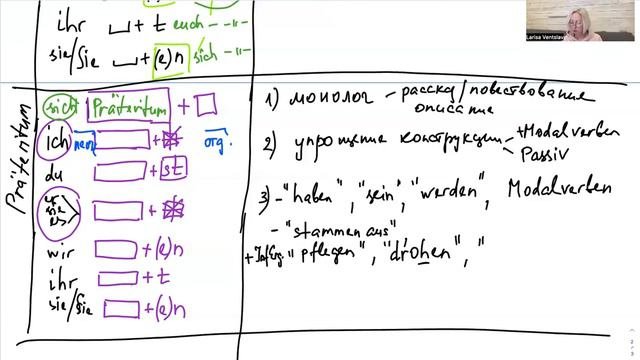 ihr ␣ + t euch - -"-
sie/Sie ␣ + (e)n sich - -"-
Präteritum
sich Präteritum + □
ich □ +
du □ + st
er
sie
es □ +
wir □ + (e)n
ihr □ + t
sie/Sie □ + (e)n
1) монолог - рассказ/повествование
описание
2) упрощение конструкции < + Modalverben
Passiv
3) - "haben", "sein", "werden", Modalverben
- "stammen aus"
"pflegen", "drohen", "
Larisa Ventslav